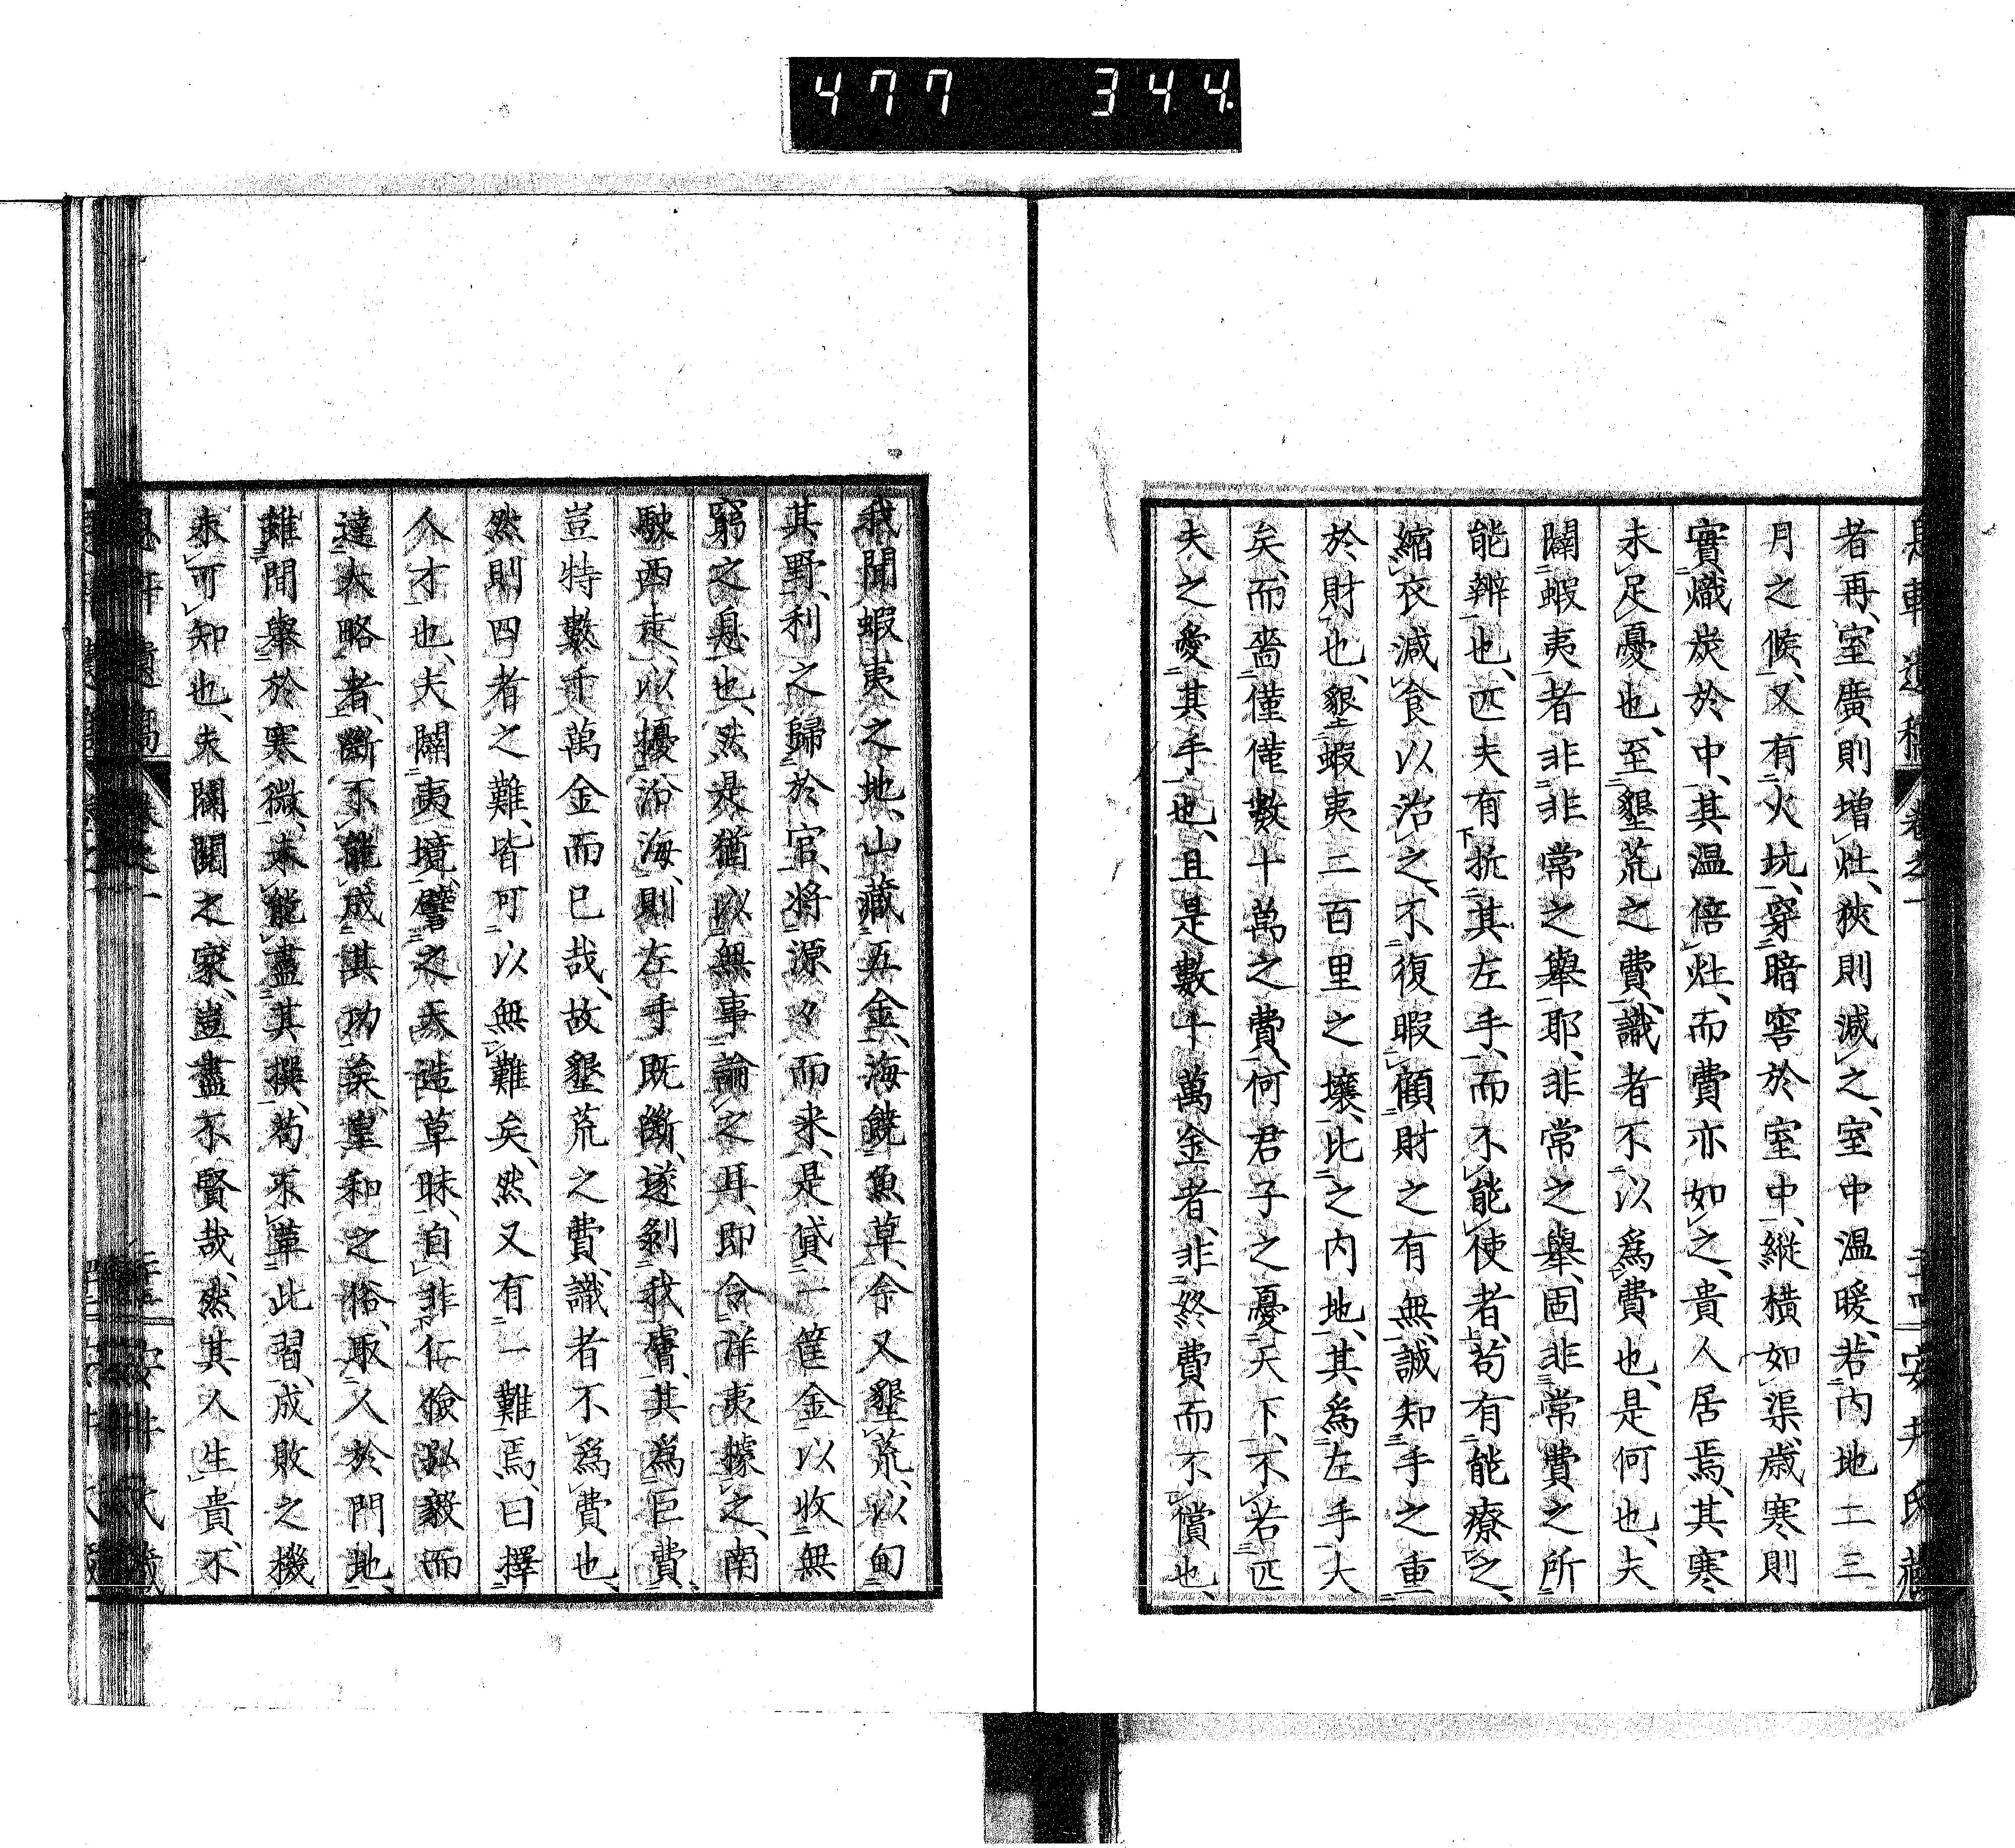 477 344
息軒遺稿 卷之一 安井氏藏
者再、室廣則增灶、狹則減之、室中温暖、若内地二三
月之候、又有火坑、穿暗窖於室中、縱橫如渠、歳寒則
實熾炭於中、其温倍灶、而費亦如之、貴人居焉、其寒
未足憂也、至墾荒之費、識者不以爲費也、是何也、夫
闢蝦夷者非非常之舉耶、非常之舉、固非常費之所
能辦也、匹夫有抗其左手、而不能使者、苟有能療之、
縮衣減食以治之、不復暇顧財之有無、誠知手之重
於財也、墾蝦夷三百里之壤、比之内地、其爲左手大
矣、而嗇僅僅數十萬之費、何君子之憂天下、不若匹
夫之愛其手也、且是數十萬金者、非終費而不償也、
我聞蝦夷之地、山藏五金、海饒魚草、今又墾荒、以甸
其野、利之歸於官、將源々而来、是貸一筐金以收無
窮之息也、然是猶以無事論之耳、即令洋夷據之、南
駛西走、以擾沿海、則左手既斷、遂剝我膚、其爲巨費、
豈特數千萬金而已哉、故墾荒之費、識者不爲費也、
然則四者之難、皆可以無難矣、然又有一難焉、曰擇
人才也、夫闢夷境、譬之天造草昧、自非仁儉弘毅而
達大略者、斷不能成其功矣、皇和之俗、取人於門地、
雖間舉於寒微、未能盡其撰、苟不革此習、成敗之機
未可知也、夫閥閲之家、豈盡不賢哉、然其人生貴、不